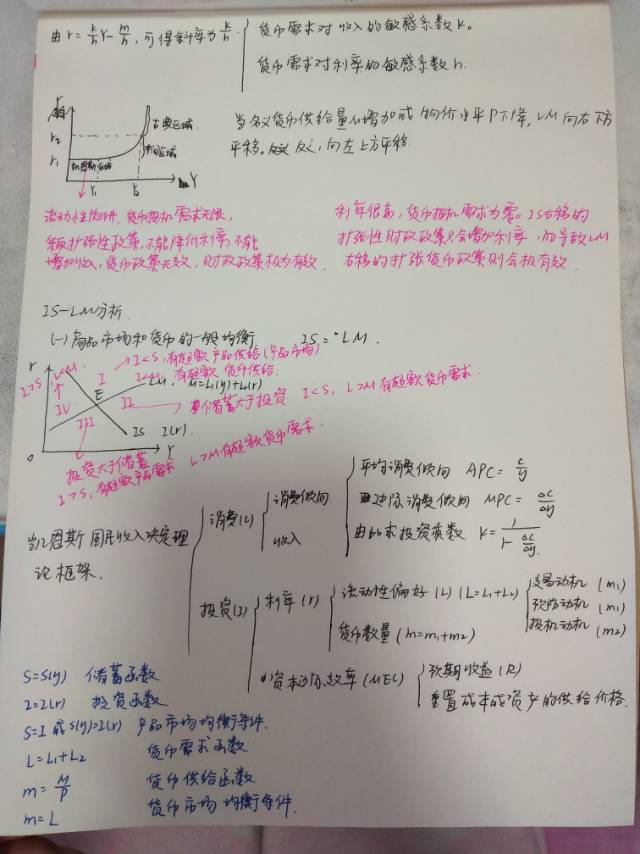 由 r = k/h Y - m/h, 可得斜率为 k/h.
货币需求对收入的敏感系数 k。
货币需求对利率的敏感系数 h.
r
r2
r1
古典区域
中间区域
凯恩斯区域
Y1
Y2
Y
当名义货币供给量M增加或物价水平P下降, LM向右下方
平移。反之,向左上方平移
流动性陷阱,货币投机需求无限,
扩张性政策,不能降低利率,不能
增加收入,货币政策无效.财政政策极为有效.
利率很高,货币投机需求为零。IS右移的
扩张性财政政策只会增加利率,而导致LM
右移的扩张货币政策则会极有效.
IS-LM分析.
(一)商品市场和货币的一般均衡
IS = LM.
I<S,有超额产品供给(产品市场)
有超额货币供给.
LM, m=L1(y)+L2(r)
储蓄大于投资 I<S, L>M有超额货币需求.
r
E
I
II
III
IV
IS I(r)
Y
o
投资大于储蓄
I>S,有超额产品需求
L>M有超额货币需求.
凯恩斯国民收入决定理
论框架.
消费(C)
消费倾向
收入
平均消费倾向 APC = c/y
边际消费倾向 MPC = ΔC/Δy
由此求投资乘数 k = 1/(1 - ΔC/Δy)
投资(I)
利率(r)
流动性偏好(L) (L=L1+L2)
交易动机 (m1)
预防动机 (m1)
投机动机 (m2)
货币数量 (m=m1+m2)
资本边际效率(MEC)
预期收益(R)
重置成本或资产的供给价格.
S=S(y) 储蓄函数
I=I(r) 投资函数
S=I 或 S(y)=I(r) 产品市场均衡条件.
L=L1+L2 货币需求函数
m = M/P 货币供给函数
m=L 货币市场均衡条件.